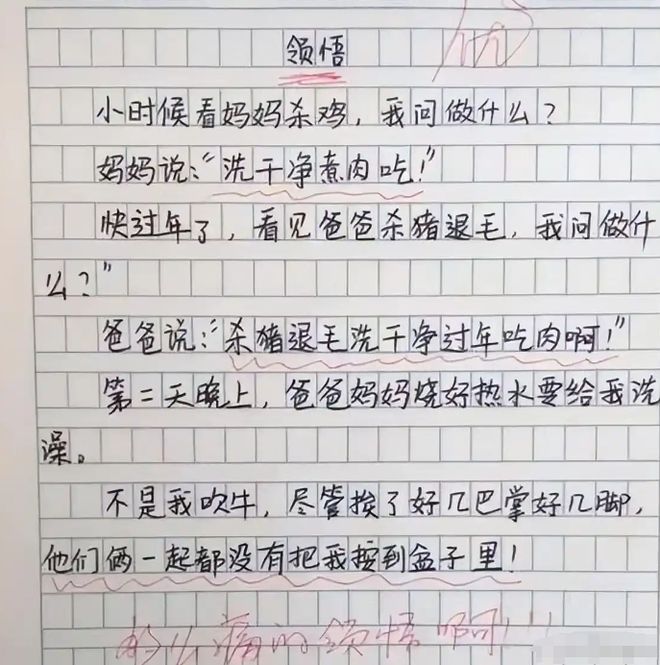 领悟
优
小时候看妈妈杀鸡，我问做什么？
妈妈说：“洗干净煮肉吃！”
快过年了，看见爸爸杀猪退毛，我问做什
么？”
爸爸说：“杀猪退毛洗干净过年吃肉啊！”
第二天晚上，爸爸妈妈烧好热水要给我洗
澡。
不是我吹牛，尽管挨了好几巴掌好几脚，
他们俩一起都没有把我按到盆子里！
多么痛的领悟啊！！！